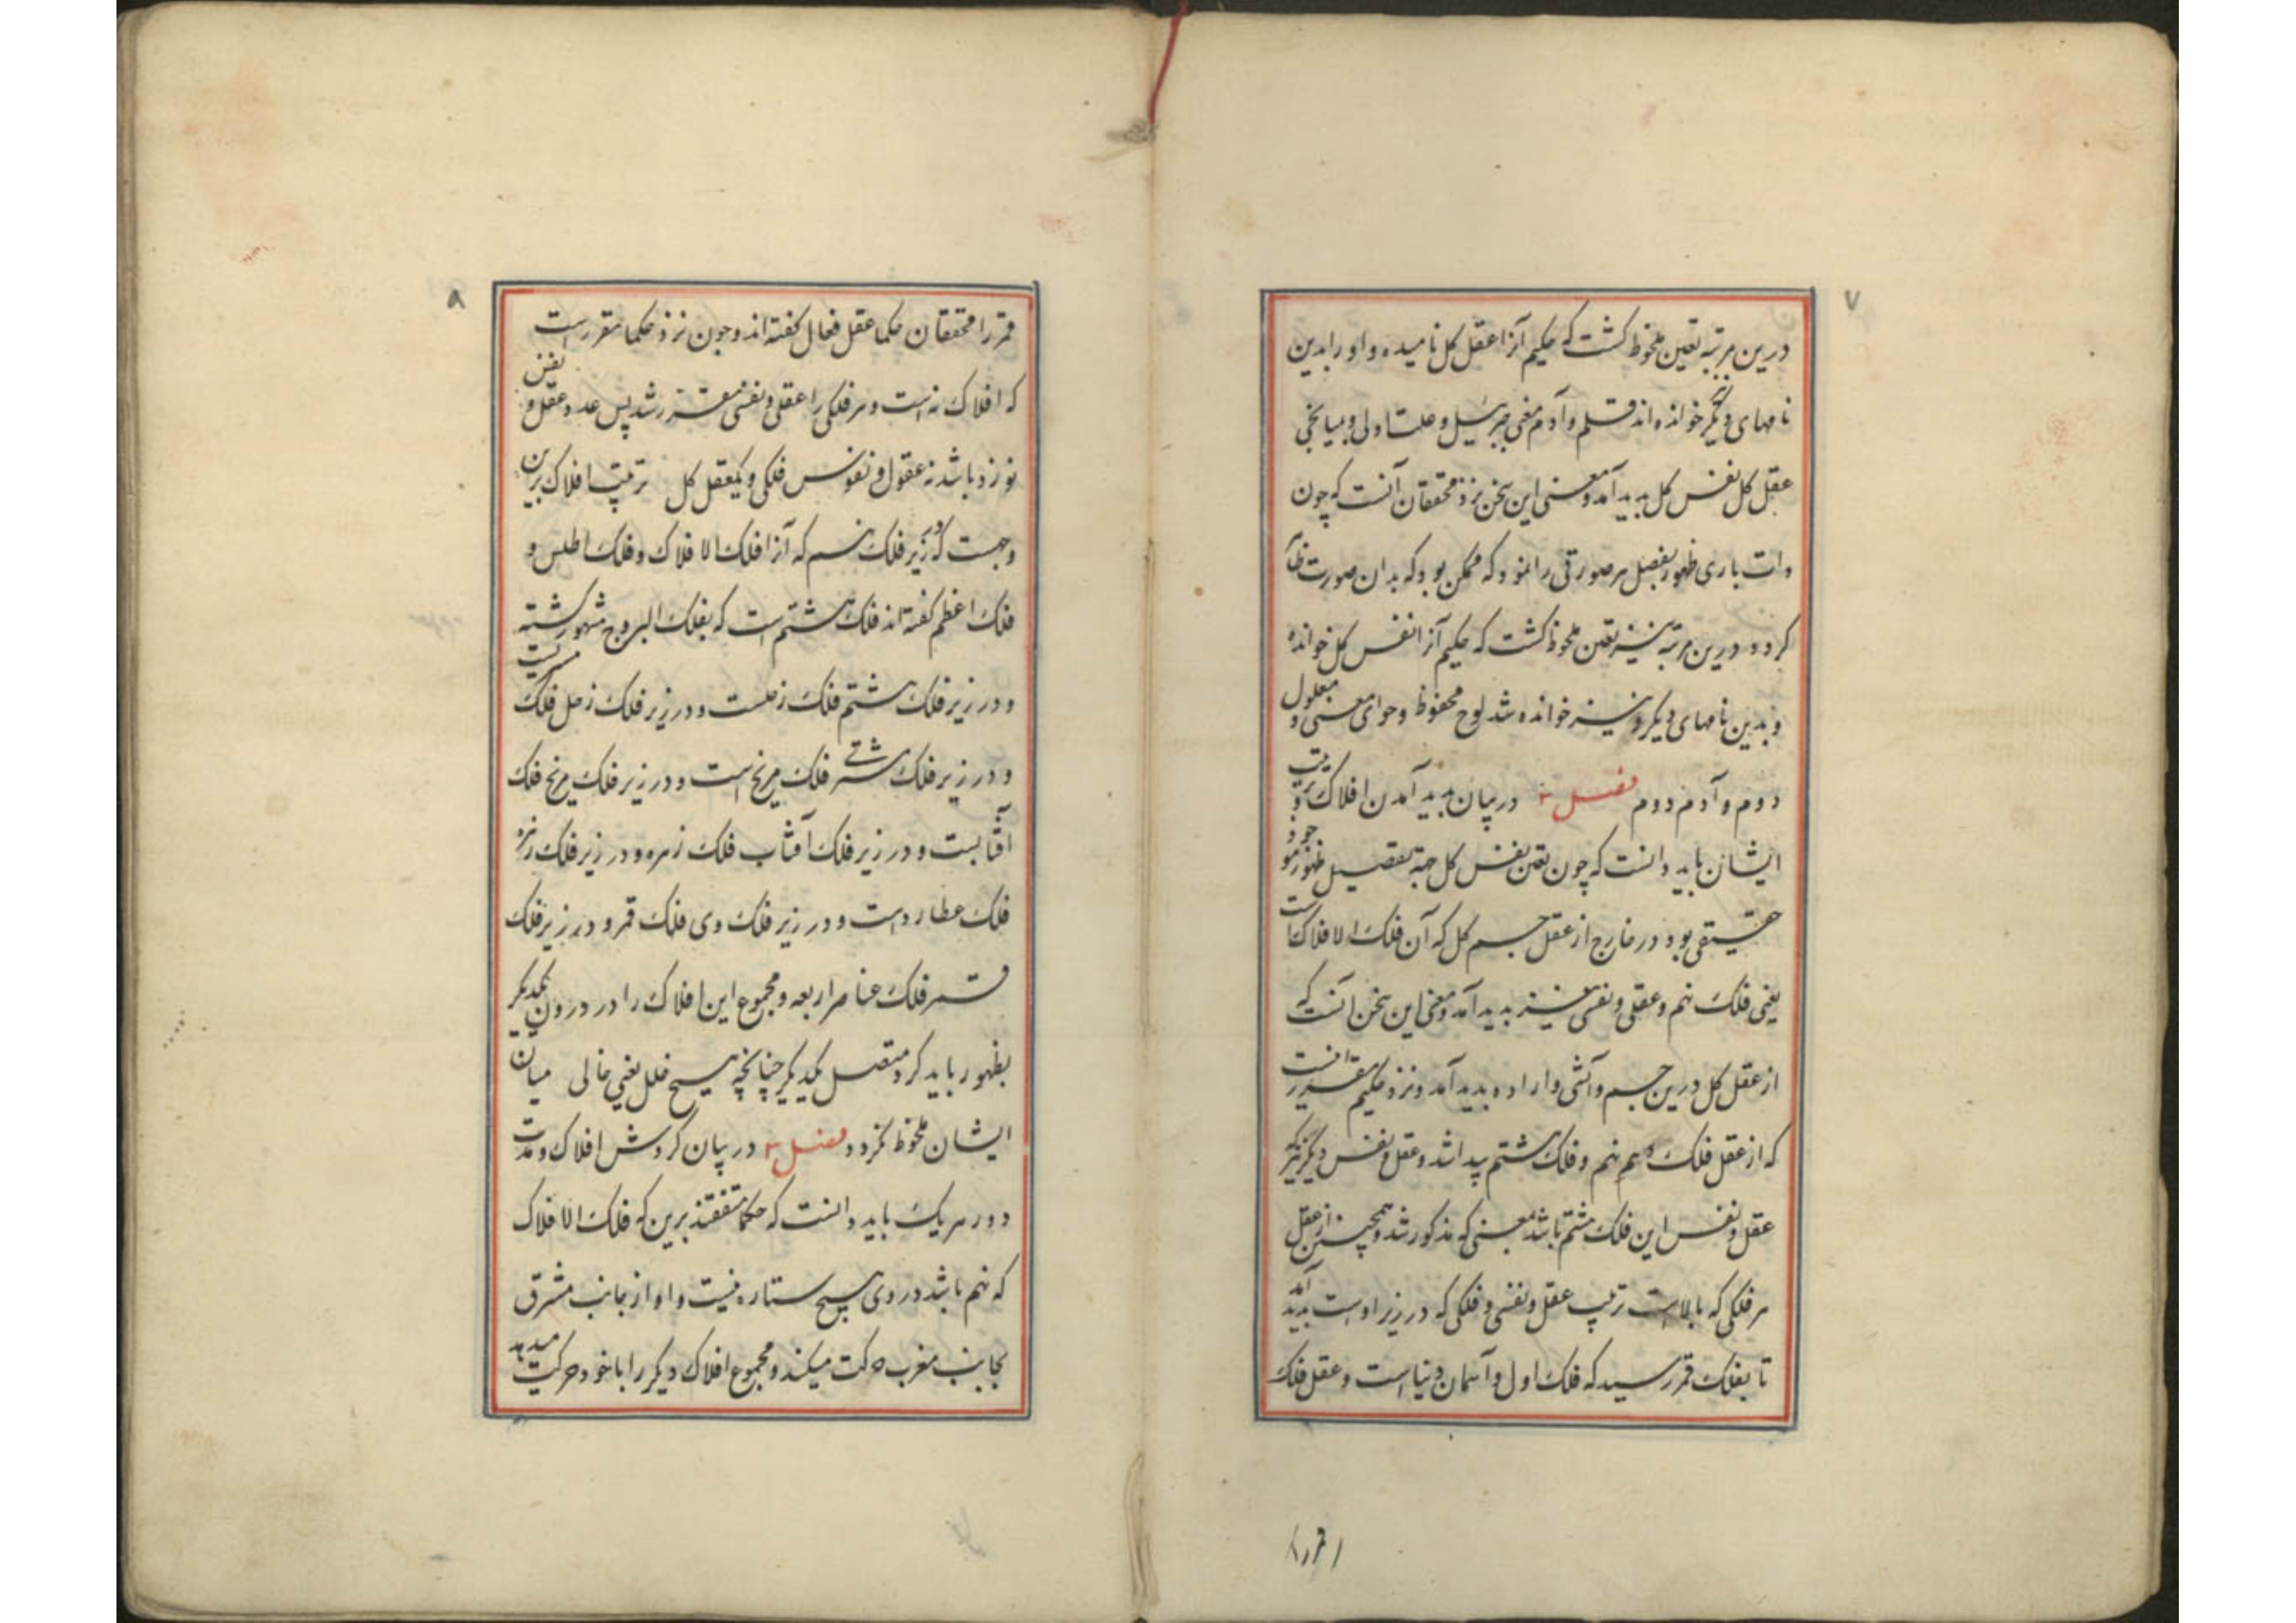 ۷
درین مرتبه تعین ملحوظ کشت که حکیم آنرا عقل کل نامیده و او را بدین
نامهای دیگر خوانده اند قلم و آدم معنی جبرئیل و علت اولی و میانجی
عقل کل نفس کل بدید آمد و معنی این سخن نزد محققان آنست که چون
ذات باری ظهور بفصل هر صورتی را نمود که ممکن بود که بدان صورت
کردد درین مرتبه نیز تعین ملحوظ کشت که حکیم آنرا نفس کل خوانده
و بدین نامهای دیگر و نیز خوانده شد لوح محفوظ و حوای معنی و معلول
دوم و آدم دوم فصل ۲ در بیان بدید آمدن افلاک و ترتیب
ایشان باید دانست که چون تعین نفس کل جهة تفصیل ظهور وجود
حقیقی بود در خارج از عقل جسم کل که آن فلک الافلاک است
یعنی فلک نهم و عقلی و نفسی نیز بدید آمد و معنی این سخن آنست که
از عقل کل درین جسم و آنشی و اراده بدید آمد و نزد حکیم مقرر است
که از عقل فلک نهم و فلک هشتم پیدا شد و عقل و نفس دیگر که
عقل و نفس این فلک هشتم باشد بمعنی که مذکور شد و همچنین از عقل
هر فلکی که بالاست ترتیب عقل و نفسی و فلکی که در زیر اوست بدید آمد
تا بفلک قمر رسید که فلک اول و آسمان دنیاست و عقل فلک
قمر را
۸
قمر را محققان حکما عقل فعال کفته اند و چون نزد حکما مقررست
که افلاک نه است و هر فلکی را عقلی و نفسی مقرر شد پس عدد عقل و نفس
نوزده باشد نه عقول و نفوس فلکی و یکعقل کل ترتیب افلاک برین
وجهست که در زیر فلک نهم که آنرا فلک الافلاک و فلک اطلس و
فلک اعظم کفته اند فلک هشتم است که بفلک البروج مشهور کشته
و در زیر فلک هشتم فلک زحلست و در زیر فلک زحل فلک مشتریست
و در زیر فلک مشتری فلک مریخ است و در زیر فلک مریخ فلک
آفتابست و در زیر فلک آفتاب فلک زهره و در زیر فلک زهره
فلک عطاردست و در زیر فلک وی فلک قمر و در زیر فلک
قمر فلک عناصر اربعه و مجموع این افلاک را در درون یکدیگر
بظهور باید کرد متصل یکدیگر چنانچه هیچ خلل یعنی خالی میان
ایشان ملحوظ نکردد فصل ۳ در بیان کردش افلاک و مدت
دور هر یک باید دانست که حکما متفقند برین که فلک الافلاک
که نهم باشد در وی هیچ ستاره نیست و او از جانب مشرق
بجانب مغرب حرکت میکند و مجموع افلاک دیگر را با خود حرکت میدهد